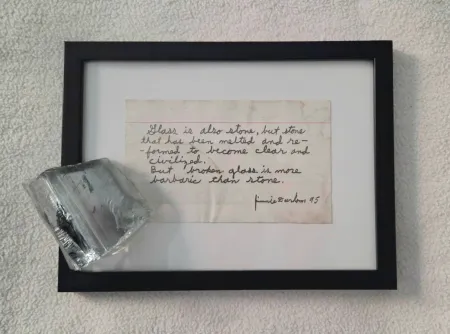 Glass is also stone, but stone
that has been melted and re-
-formed to become clear and
civilized.
But broken glass is more
barbaric than stone.
95